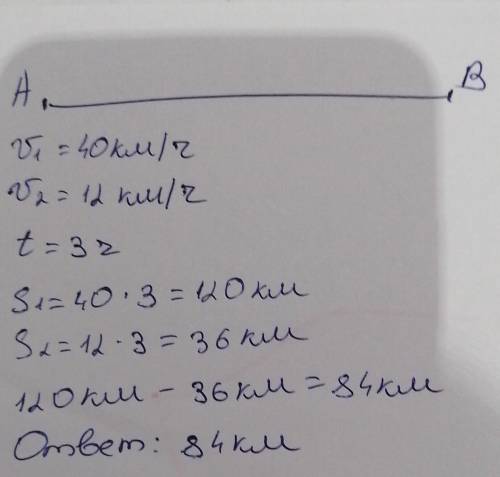 A B
v₁ = 40 км/ч
v₂ = 12 км/ч
t = 3 ч
S₁ = 40 · 3 = 120 км
S₂ = 12 · 3 = 36 км
120 км - 36 км = 84 км
Ответ: 84 км